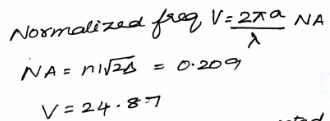 Normalized freq V = 2πa/λ NA
NA = n1√2Δ = 0.209
V = 24.87